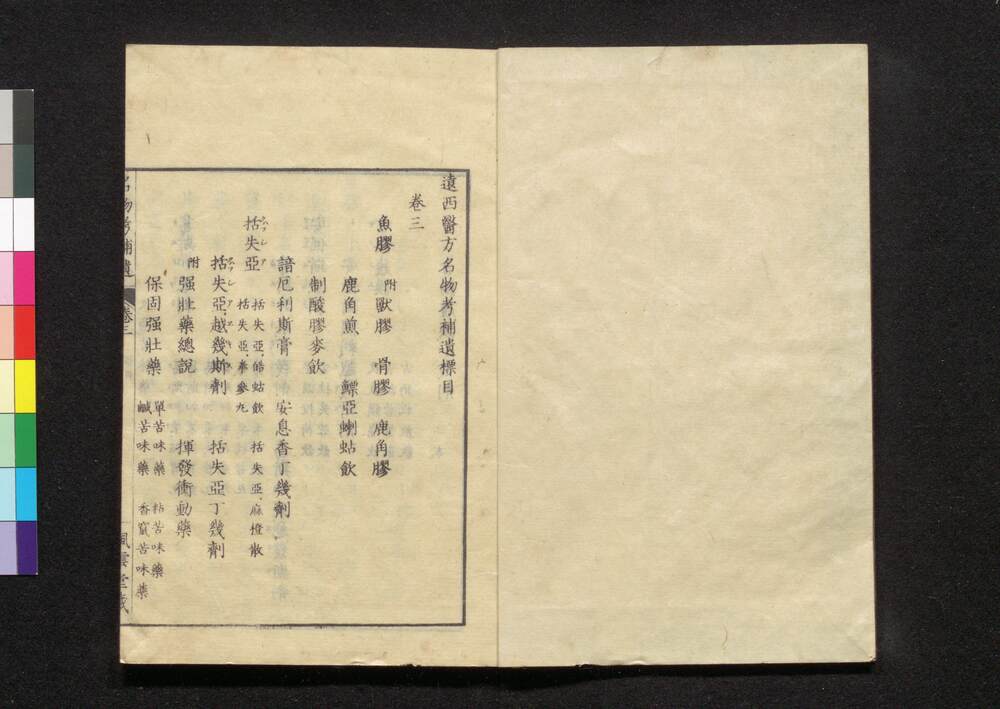 遠西醫方名物考補遺標目
卷三
魚膠 附獸膠 骨膠 鹿角膠
鹿角煎 鰾亞喇蛄飲
制酸膠麥飲
諳厄利斯膏 安息香丁幾劑
括失亞 括失亞.皤蛄飲 括失亞.麻橙散
括失亞.拳參丸
括失亞.越幾斯劑 括失亞丁幾劑
附 强壯藥總說 揮發衝動藥
保固强壯藥 單苦味藥 粘苦味藥
鹹苦味藥 香竄苦味藥
名物考補遺 卷三 風雲堂藏